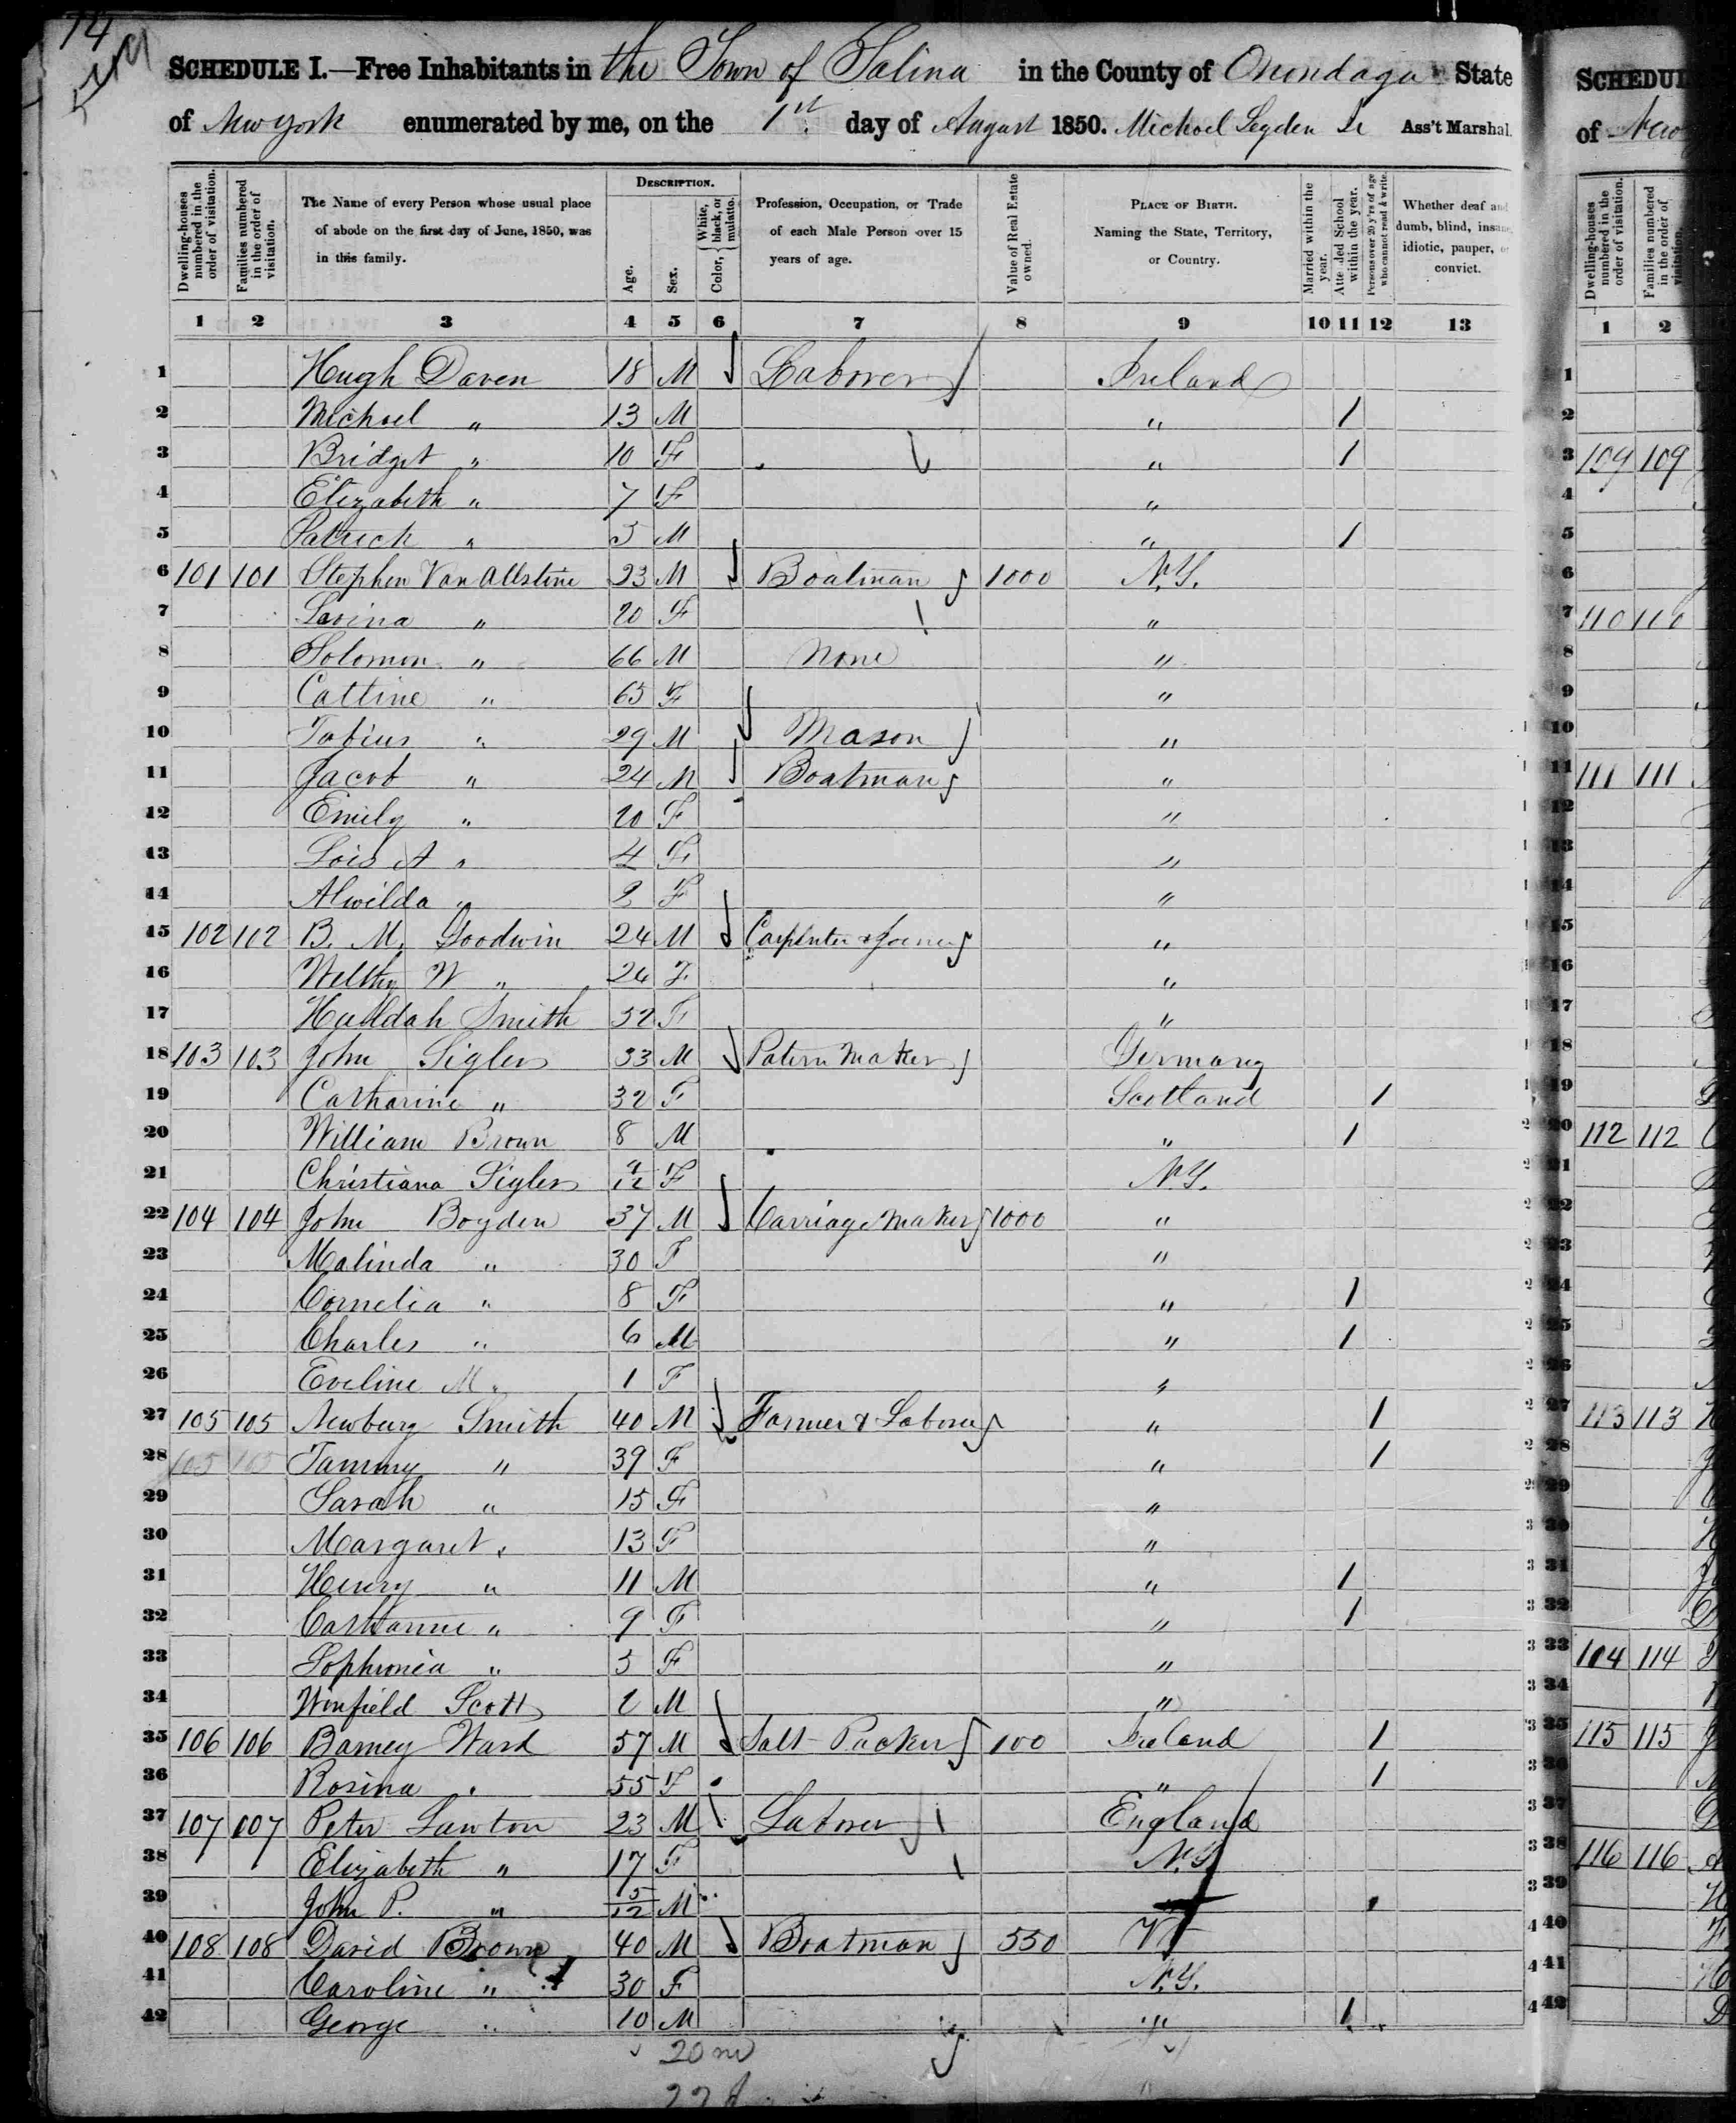 74
SCHEDULE I.—Free Inhabitants in the Town of Salina in the County of Onondaga State
of New York enumerated by me, on the 1st. day of August 1850. Michael Ass't Marshal.
Dwelling-houses numbered in the order of visitation.
Families numbered in the order of visitation.
The Name of every Person whose usual place of abode on the first day of June, 1850, was in this family.
DESCRIPTION.
Age.
Sex.
Color, { White, black, or mulatto.
Profession, Occupation, or Trade of each Male Person over 15 years of age.
Value of Real Estate owned.
PLACE OF BIRTH. Naming the State, Territory, or Country.
Married within the year.
Attended School within the year.
Persons over 20 y'rs of age who cannot read & write.
Whether deaf and dumb, blind, insane, idiotic, pauper, or convict.
1 2 3 4 5 6 7 8 9 10 11 12 13
1 Hugh Daven 18 M Laborer Ireland
2 Michael " 13 M " 1
3 Bridget " 10 F " 1
4 Elizabeth " 7 F "
5 Patrick " 5 M " 1
6 101 101 Stephen Van Allstine 23 M Boatman 1000 N.Y.
7 Lovina " 20 F "
8 Solomon " 66 M None "
9 Cattine " 65 F "
10 Tobius " 29 M Mason "
11 Jacob " 24 M Boatman "
12 Emily " 20 F "
13 Lois A " 4 F "
14 Alwilda " 2 F "
15 102 102 B. M. Goodwin 24 M Carpenter & Joiner "
16 Welthy W " 24 F "
17 Huldah Smith 32 F "
18 103 103 John Sigler 33 M Patern Maker Germany
19 Catharine " 32 F Scotland 1
20 William Brown 8 M " 1
21 Christiana Sigler 9/12 F N.Y.
22 104 104 John Boyden 37 M Carriage Maker 1000 "
23 Malinda " 30 F "
24 Cornelia " 8 F " 1
25 Charles " 6 M " 1
26 Eveline M " 1 F "
27 105 105 Newbury Smith 40 M Farmer & Laborer " 1
28 105 105 Tammy " 39 F " 1
29 Sarah " 15 F "
30 Margaret " 13 F "
31 Henry " 11 M " 1
32 Catharine " 9 F " 1
33 Sophronia " 5 F "
34 Winfield Scott 2 M "
35 106 106 Barney Ward 57 M Salt Packer 100 Ireland 1
36 Rosina " 55 F " 1
37 107 107 Peter Lawton 23 M Laborer England
38 Elizabeth " 17 F N.Y.
39 John P. " 5/12 M "
40 108 108 David Brown 40 M Boatman 550 Vt
41 Caroline " 30 F N.Y.
42 George " 10 M " 1
20 m
22 f
SCHEDUL
of New
Dwelling-houses numbered in the order of visitation.
Families numbered in the order of visitation.
1 2
1
2
3 109 109
4
5
6
7 110 110
8
9
10
11 111 111
12
13
14
15
16
17
18
19
20 112 112
21
22
23
24
25
26
27 113 113
28
29
30
31
32
33 114 114
34
35 115 115
36
37
38 116 116
39
40
41
42